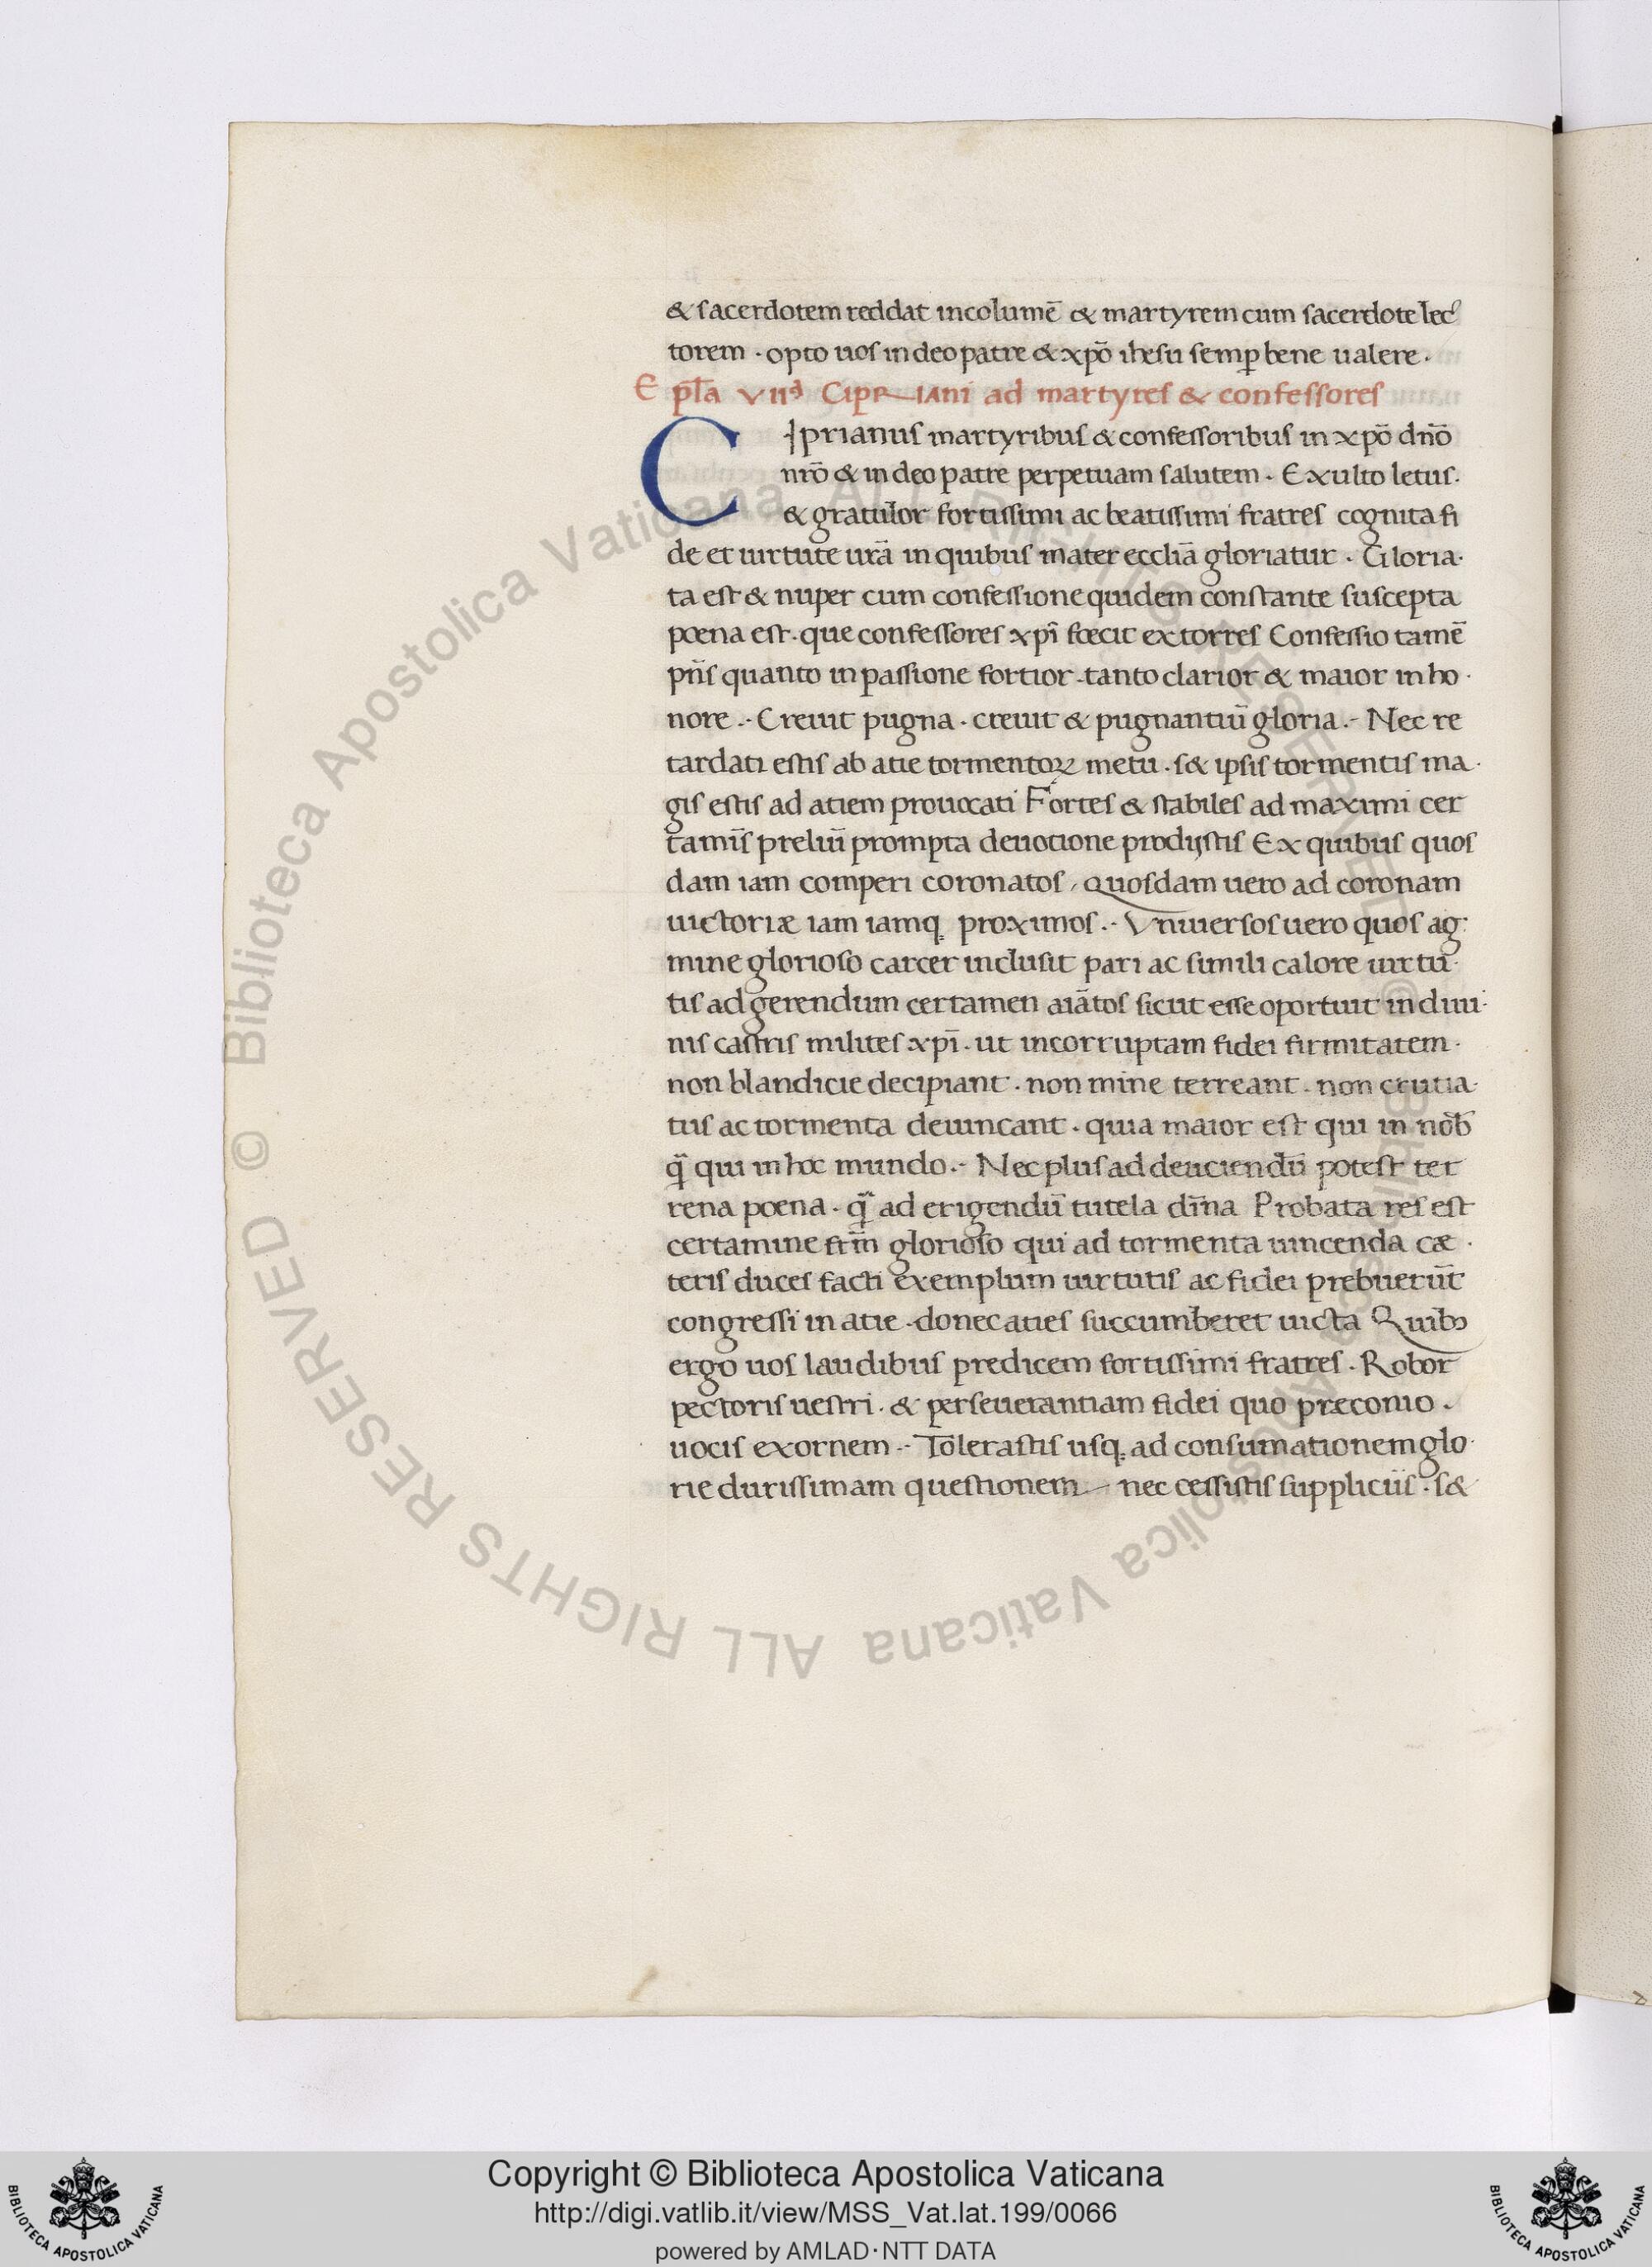 & sacerdotem reddat incolumē & martyrem cum sacerdote lec
torem · opto uos in deo patre & xp̄o ihesu semꝑ bene ualere ·
Epl̄a VIIᵃ CIPRIANI ad martyres & confessores
Ciprianus martyribus & confessoribus in xp̄o dn̄o
nr̄o & in deo patre perpetuam salutem · Exulto letus ·
& gratulor fortissimi ac beatissimi fratres cognita fi
de et uirtute ur̄a in quibus mater eccl̄ia gloriatur · Gloria·
ta est & nuper cum confessione quidem constante suscepta
poena est · que confessores xp̄i foecit extorres Confessio tamē
pn̄s quanto in passione fortior · tanto clarior & maior in ho ·
nore · Creuit pugna · creuit & pugnantiū gloria · Nec re
tardati estis ab atie tormentoꝝ metu · s& ipsis tormentis ma ·
gis estis ad atiem prouocati Fortes & stabiles ad maximi cer
tamīs preliū prompta deuotione prodijstis Ex quibus quos
dam iam comperi coronatos , quosdam uero ad coronam
uictoriæ iam iamq; proximos · Vniuersos uero quos ag·
mine glorioso carcer inclusit pari ac simili calore uirtu·
tis ad gerendum certamen aiātos sicut esse oportuit in diui·
nis castris milites xp̄i · ut incorruptam fidei firmitatem ·
non blandicie decipiant · non mine terreant · non crutia·
tus ac tormenta deuincant · quia maior est qui in nob̄
q̄ qui in hoc mundo · Nec plus ad deiiciendū potest ter
rena poena · q̄ ad erigendū tutela diīna Probata res est
certamine frm̄ glorioso qui ad tormenta uincenda cæ ·
teris duces facti exemplum uirtutis ac fidei prebuerūt
congressi in atie · donec aties succumberet uicta Quibꝫ
ergo uos laudibus predicem fortissimi fratres · Robor
pectoris uestri · & perseuerantiam fidei quo præconio ·
uocis exornem · Tolerastis usq; ad consumationem glo·
rie durissimam questionem nec cessistis suppliciis · s&
© Biblioteca Apostolica Vaticana ALL RIGHTS RESERVED © Biblioteca Apostolica Vaticana ALL RIGHTS RESERVED
Copyright © Biblioteca Apostolica Vaticana
http://digi.vatlib.it/view/MSS_Vat.lat.199/0066
powered by AMLAD·NTT DATA
BIBLIOTECA APOSTOLICA VATICANA
BIBLIOTECA APOSTOLICA VATICANA